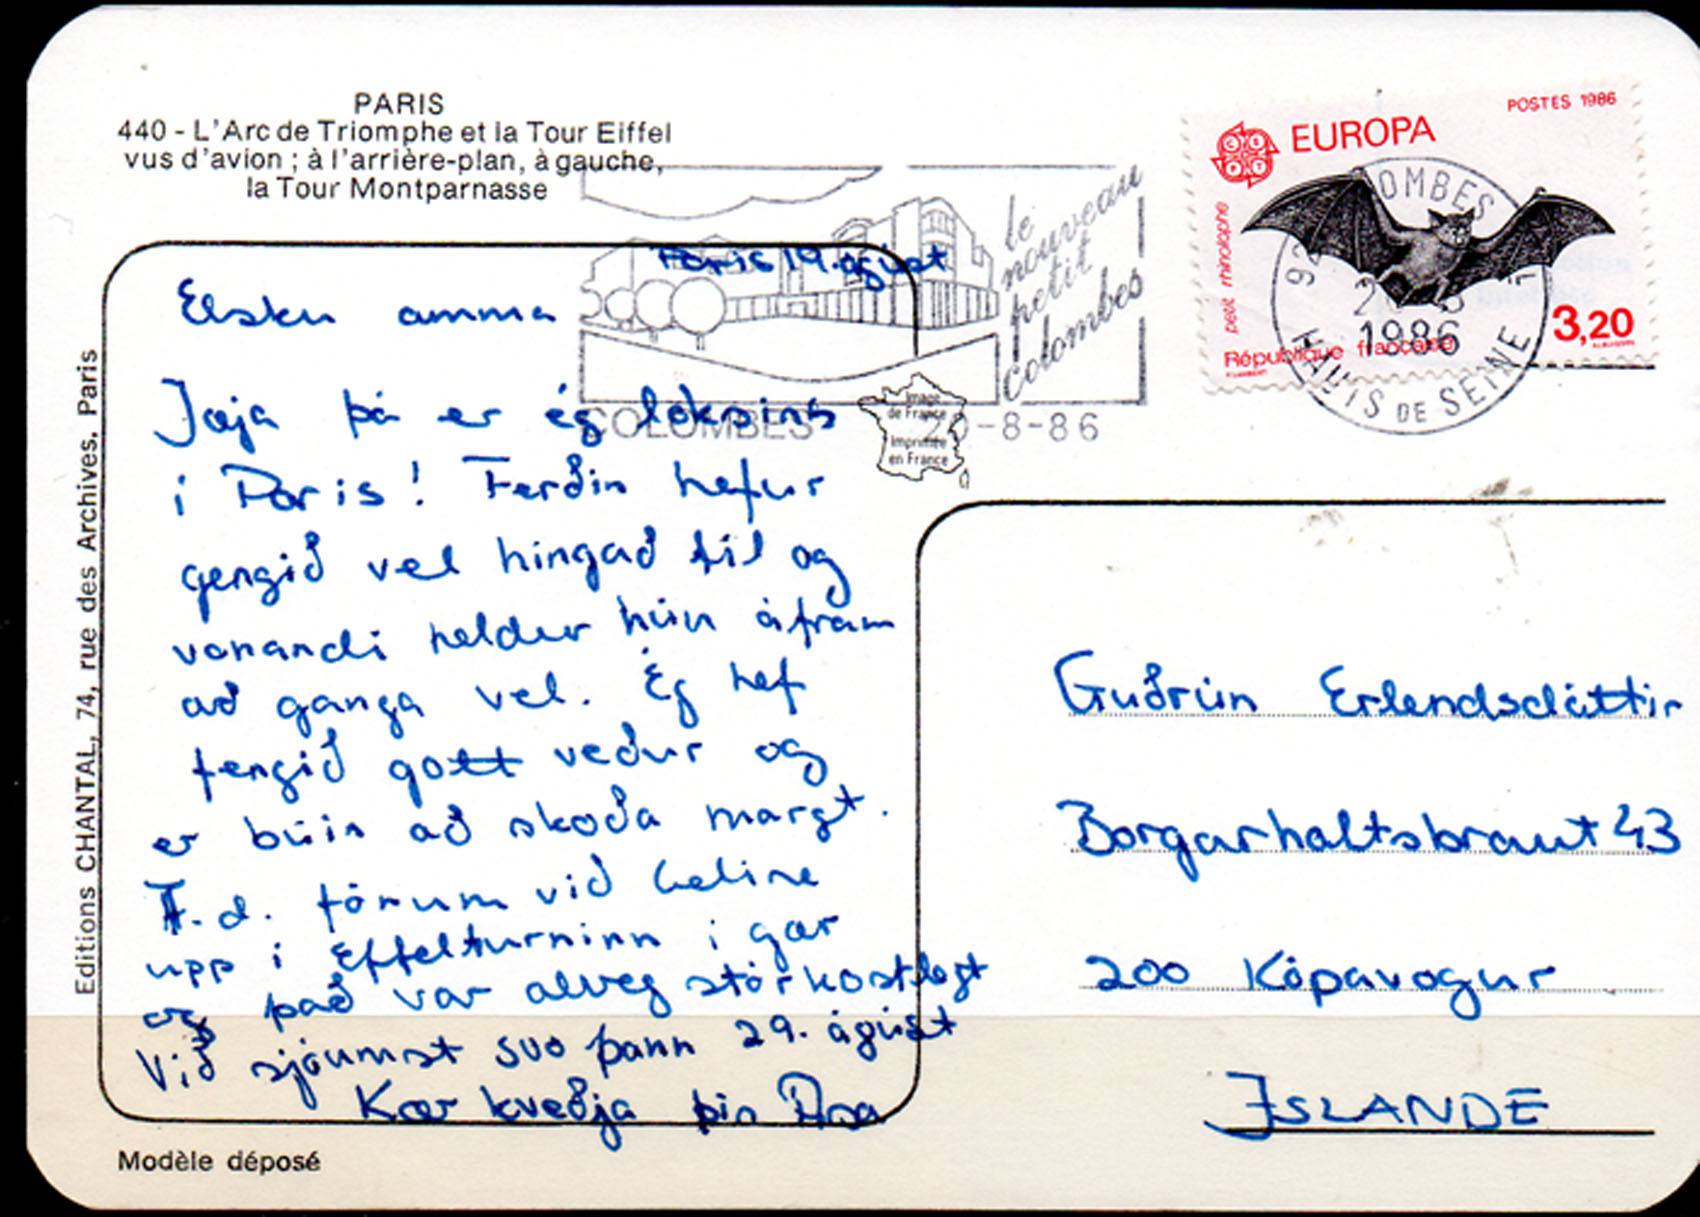 PARIS
440 - L'Arc de Triomphe et la Tour Eiffel
vus d'avion ; à l'arrière-plan, à gauche,
la Tour Montparnasse
POSTES 1986
EUROPA
CEPT
petit rhinolophe
3,20
République française
OMBES
92
1986
HAUTS DE SEINE
le
nouveau
petit
colombes
COLOMBES
20-8-86
Image
de France
Imprimée
en France
Editions CHANTAL, 74, rue des Archives, Paris
Paris 19. ágúst
Elsku amma
Jæja þá er ég loksins
í París! Ferðin hefur
gengið vel hingað til og
vonandi heldur hún áfram
að ganga vel. Ég hef
fengið gott veður og
er búin að skoða margt.
T.d. fórum við Celine
upp í Effelturninn í gær
og það var alveg stórkostlegt
Við sjáumst svo þann 29. ágúst
Kær kveðja þín Asa
Guðrún Erlendsdóttir
Borgarholtsbraut 43
200 Kópavogur
ISLANDE
Modèle déposé